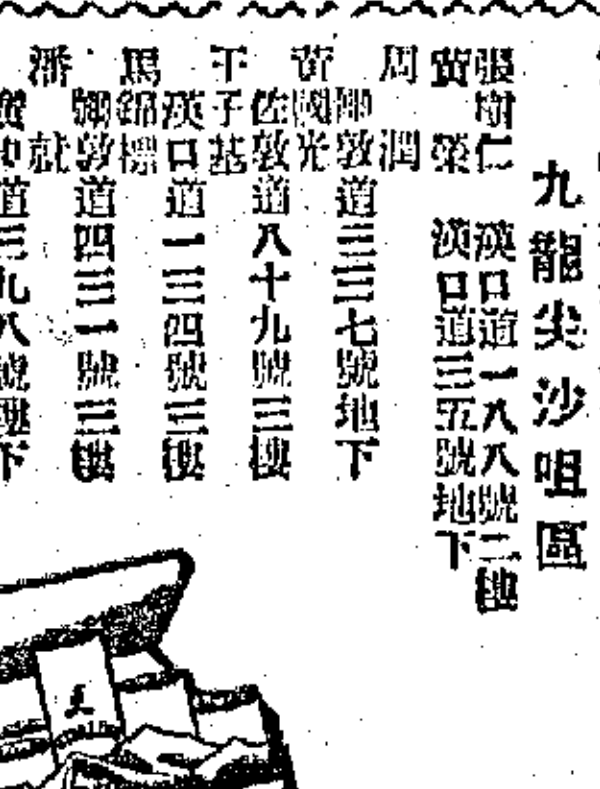 九龍尖沙咀區
張樹仁 漢口道一八八號二樓
黃榮 漢口道三五號地下
周潤
彌敦道三三七號地下
黃國光
佐敦道八十九號三樓
子基
漢口道一三四號三樓
馬錦標
彌敦道四三一號三樓
潘就
道三九八號樓下